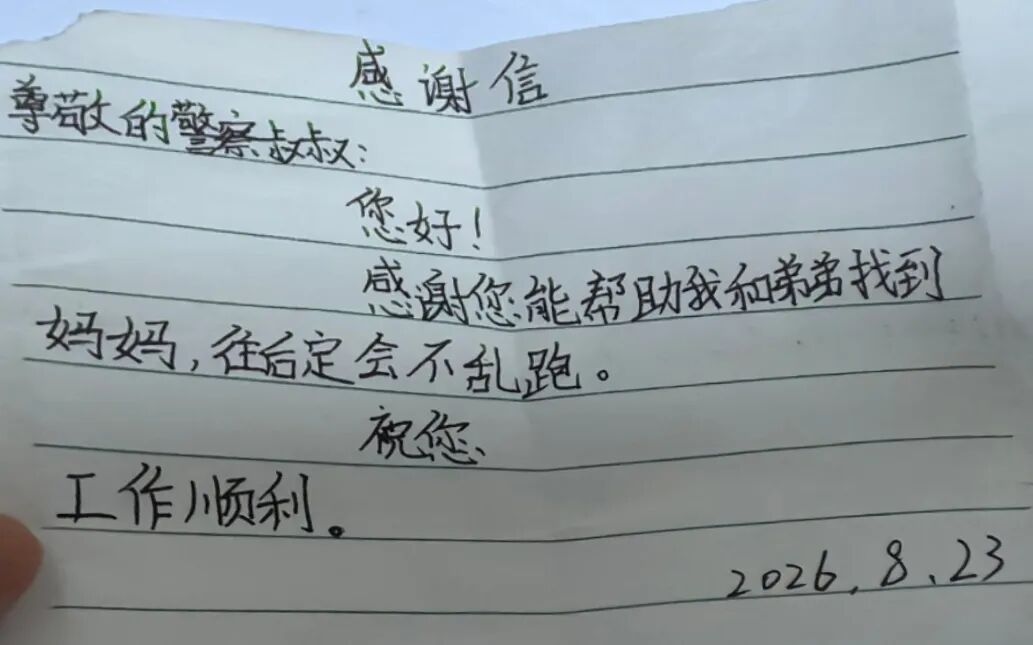 感谢信
尊敬的警察叔叔：
您好！
感谢您能帮助我和弟弟找到
妈妈，往后定会不乱跑。
祝您
工作顺利。
2026.8.23